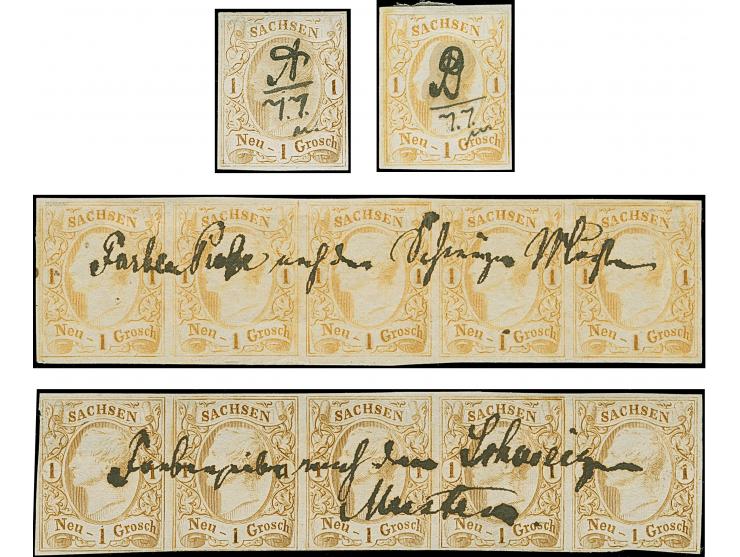 SACHSEN SACHSEN
A B
1 1 1 1
7.7. 7.7.
Neu - 1 Grosch Neu - 1 Grosch
SACHSEN SACHSEN SACHSEN SACHSEN SACHSEN
Farben Probe nach den Schweizer Muster
1 1 1 1 1 1 1 1 1 1
Neu - 1 Grosch Neu - 1 Grosch Neu - 1 Grosch Neu - 1 Grosch Neu - 1 Grosch
SACHSEN SACHSEN SACHSEN SACHSEN SACHSEN
Farbenprobe nach dem Schweizer
1 1 1 1 1 1 1 1 1 1
Mustern.
Neu - 1 Grosch Neu - 1 Grosch Neu - 1 Grosch Neu - 1 Grosch Neu - 1 Grosch